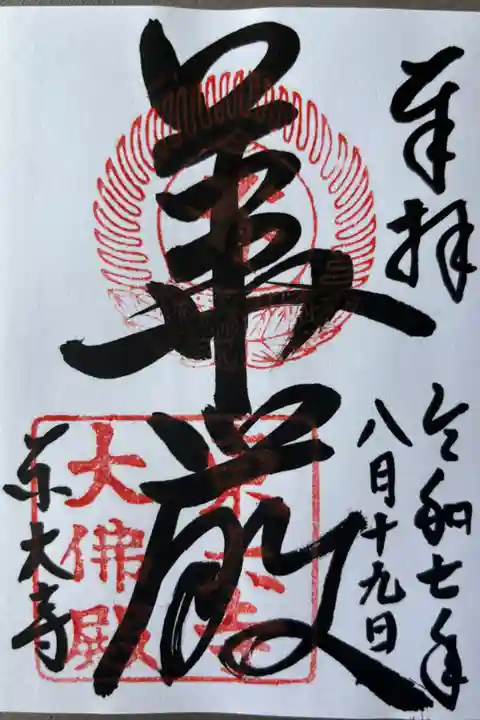 奉拝
令和七年
八月十九日
華厳
東大寺
東大寺
大佛殿